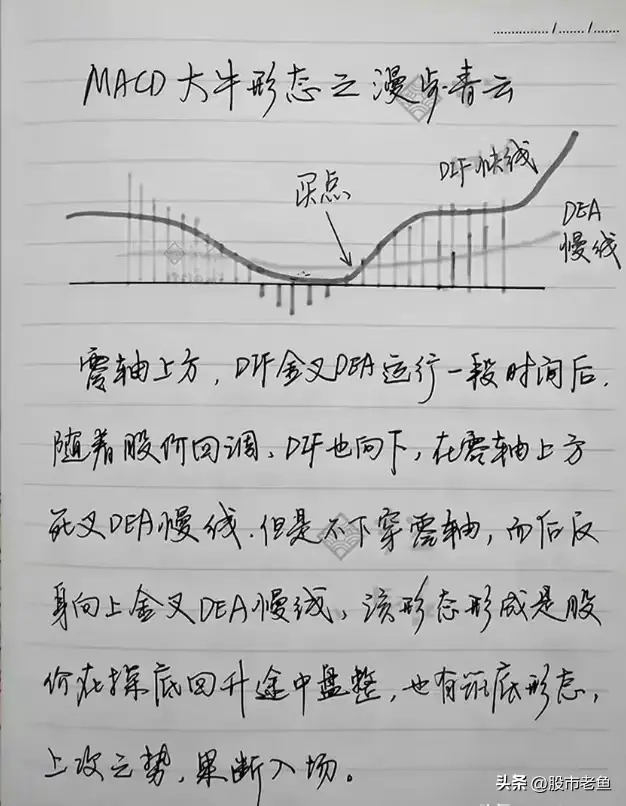 MACD大牛形态之漫步青云
买点
DIF快线
DEA
慢线
零轴上方，DIF金叉DEA运行一段时间后，
随着股价回调、DIF也向下，在零轴上方
死叉DEA慢线．但是不下穿零轴，而后反
身向上金叉DEA慢线，该形态形成是股
价在探底回升途中盘整，也有筑底形态，
上攻之势，果断入场。
头条 @股市老鱼